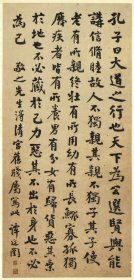 孔子曰大道之行也天下為公選賢與能
講信脩睦故人不獨親其親不獨子其子使
老有所終壯有所用幼有所長鰥寡孤獨
廢疾者皆有所養男有分女有歸貨惡其棄
於地也不必藏於己力惡其不出於身也不必
為己 敬之先生得清宮舊牋屬寫此 譚延闓